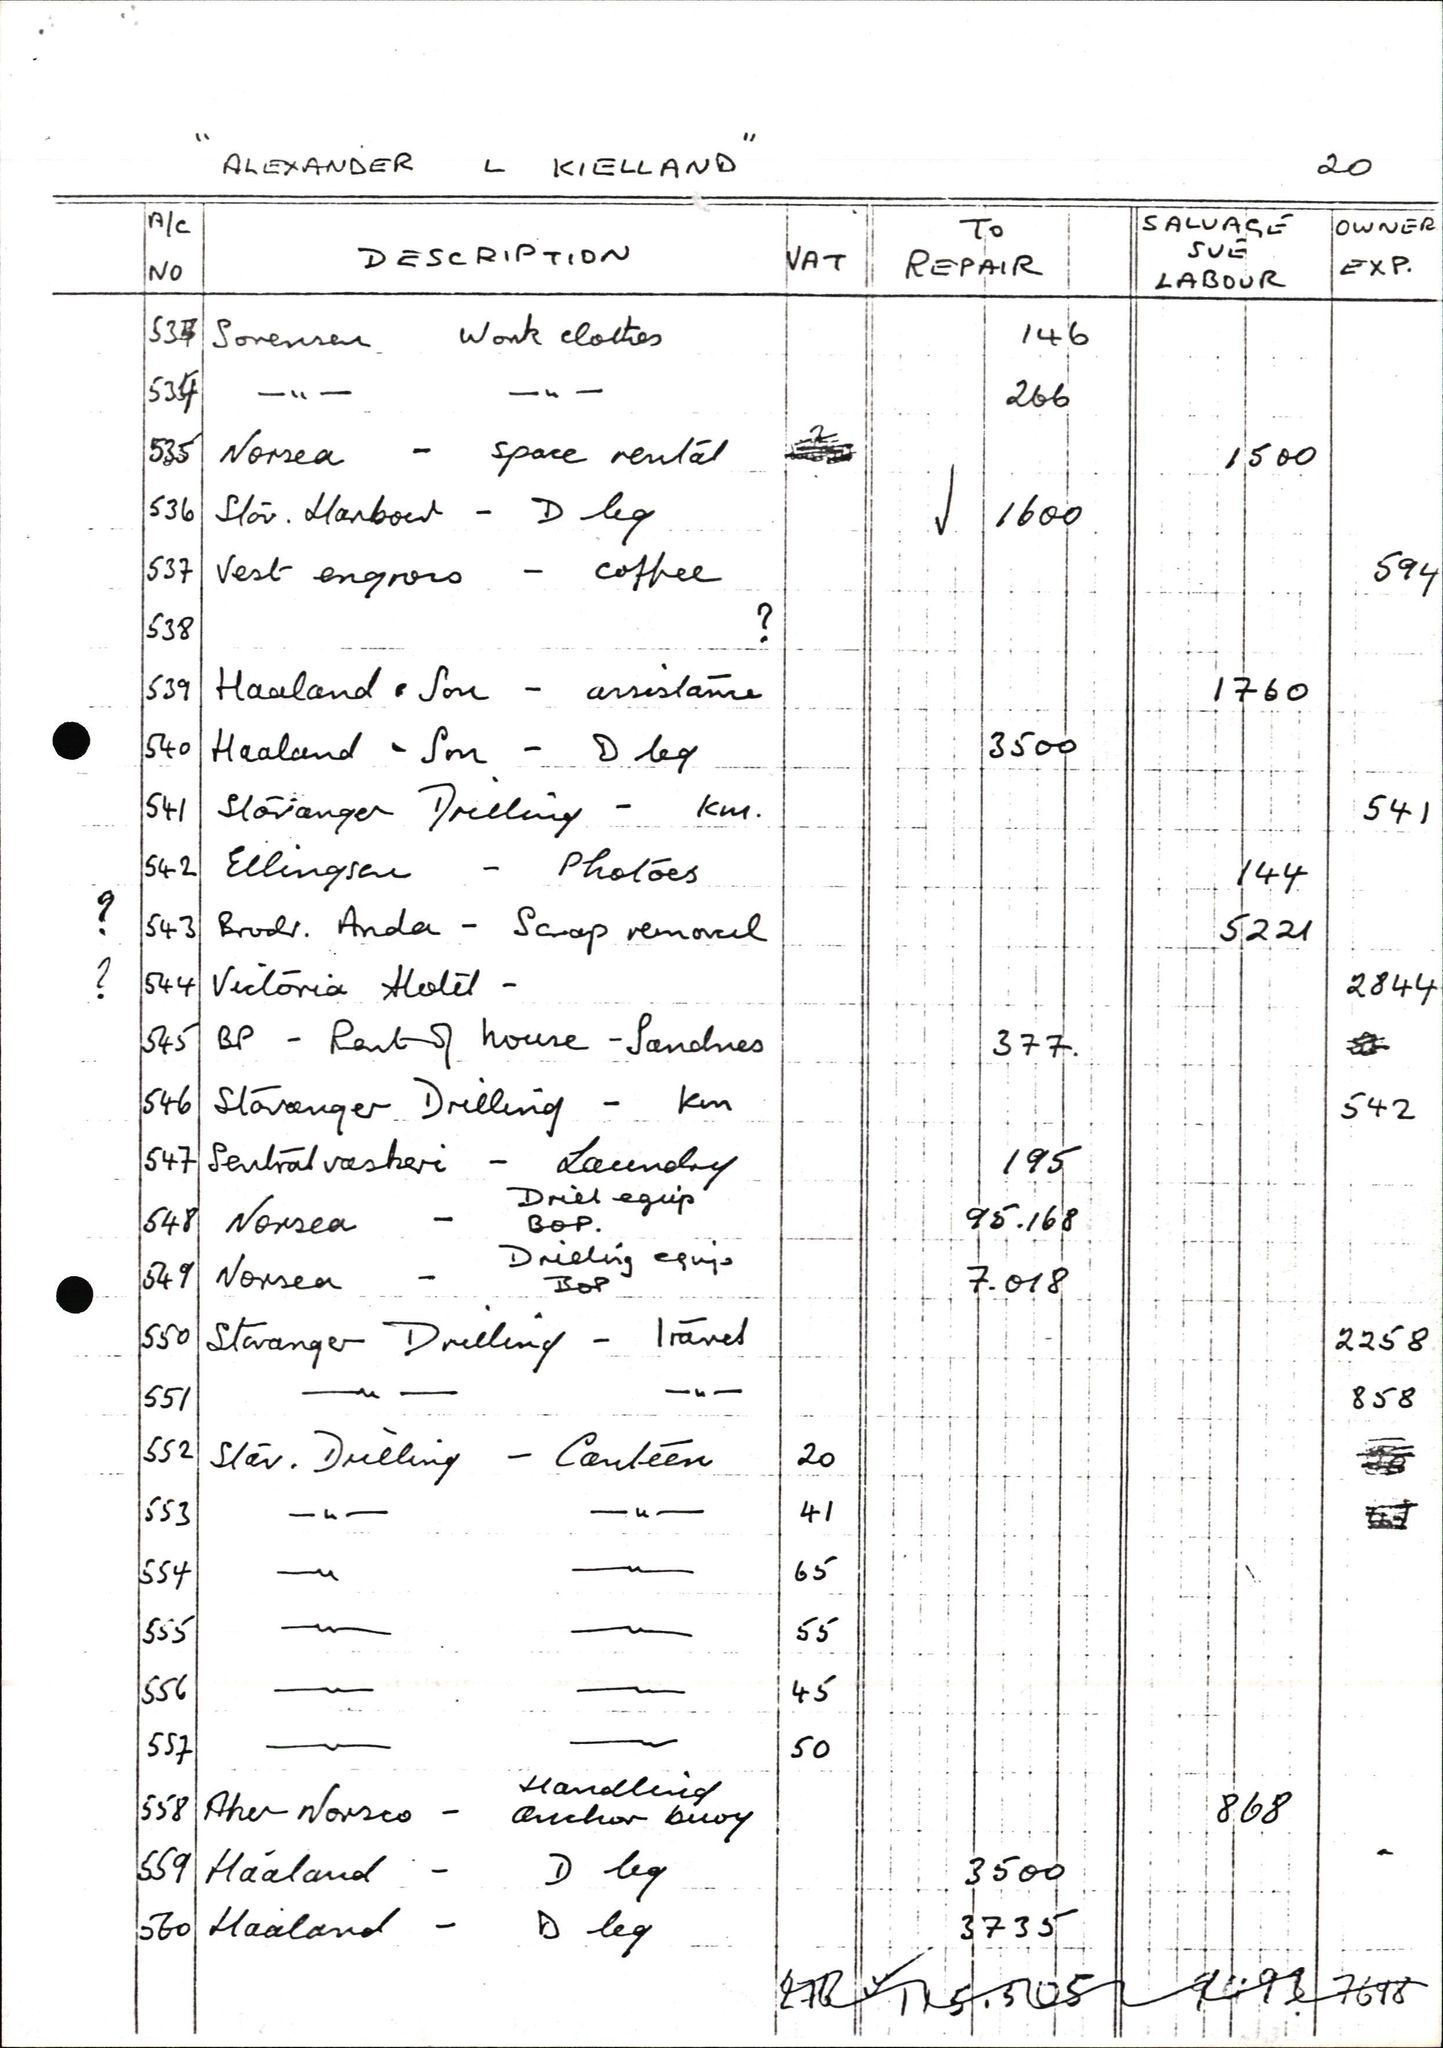 "ALEXANDER L KIELLAND" 20
A/C NO DESCRIPTION VAT TO REPAIR SALVAGE SUE LABOUR OWNER EXP.
533 Sorensen Work clothes 146
534 —"— —"— 266
535 Norsea - space rental 1500
536 Stav. Harbour - D leg √ 1600
537 Vest engross - coffee 594
538 ?
539 Haaland & Son - assistance 1760
540 Haaland & Son - D leg 3500
541 Stavanger Drilling - km. 541
542 Ellingsen - Photoes 144
? 543 Brodr. Anda - Scrap removal 5221
? 544 Victoria Hotel - 2844
545 BP - Rent of house - Sandnes 377.
546 Stavanger Drilling - km 542
547 Sentralvaskeri - Laundry 195
548 Norsea - Drill equip BOP. 95.168
549 Norsea - Drilling equip BOP 7.018
550 Stavanger Drilling - Travel 2258
551 —"— —"— 858
552 Stav. Drilling - Canteen 20
553 —"— —"— 41
554 —"— —"— 65
555 —"— —"— 55
556 —"— —"— 45
557 —"— —"— 50
558 Aker Norsco - Handling anchor buoy 868
559 Haaland - D leg 3500
560 Haaland - D leg 3735
276 115.505